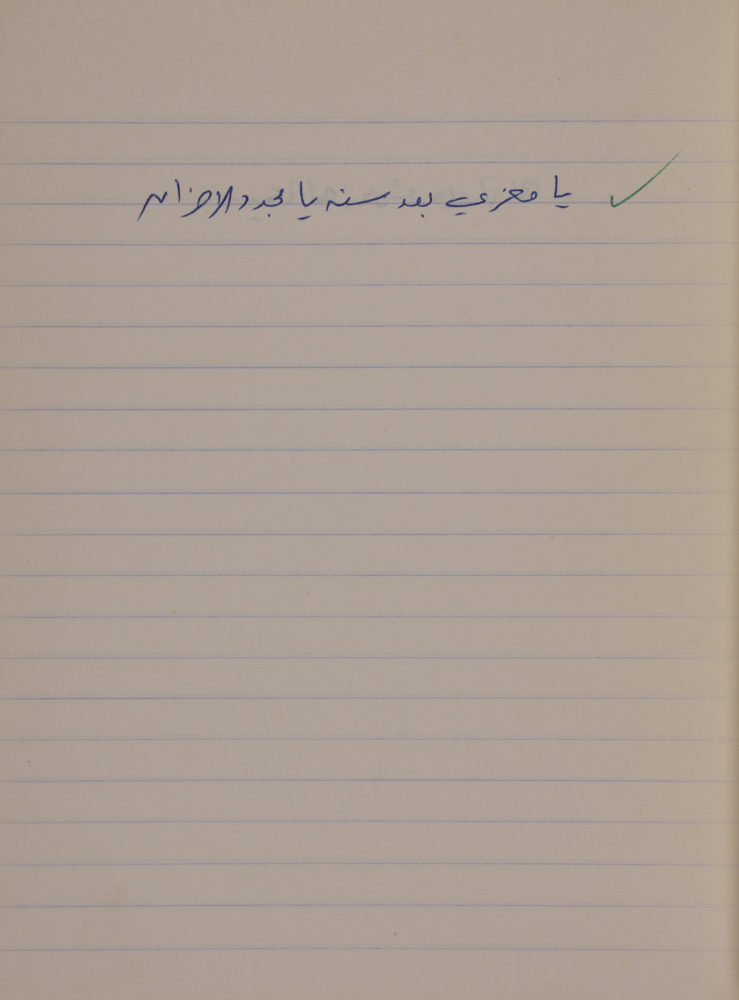 يا معزي بعد سنه يا مجدد الاحزان